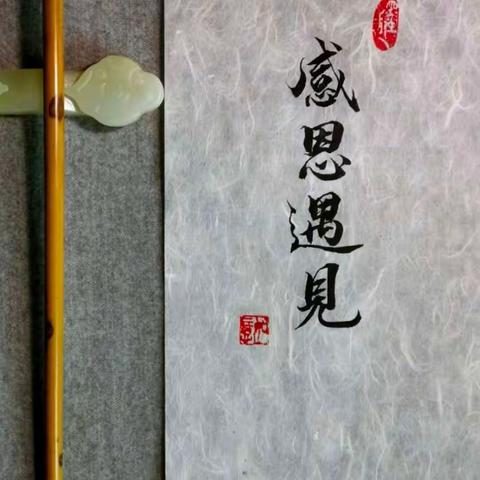 感恩遇見